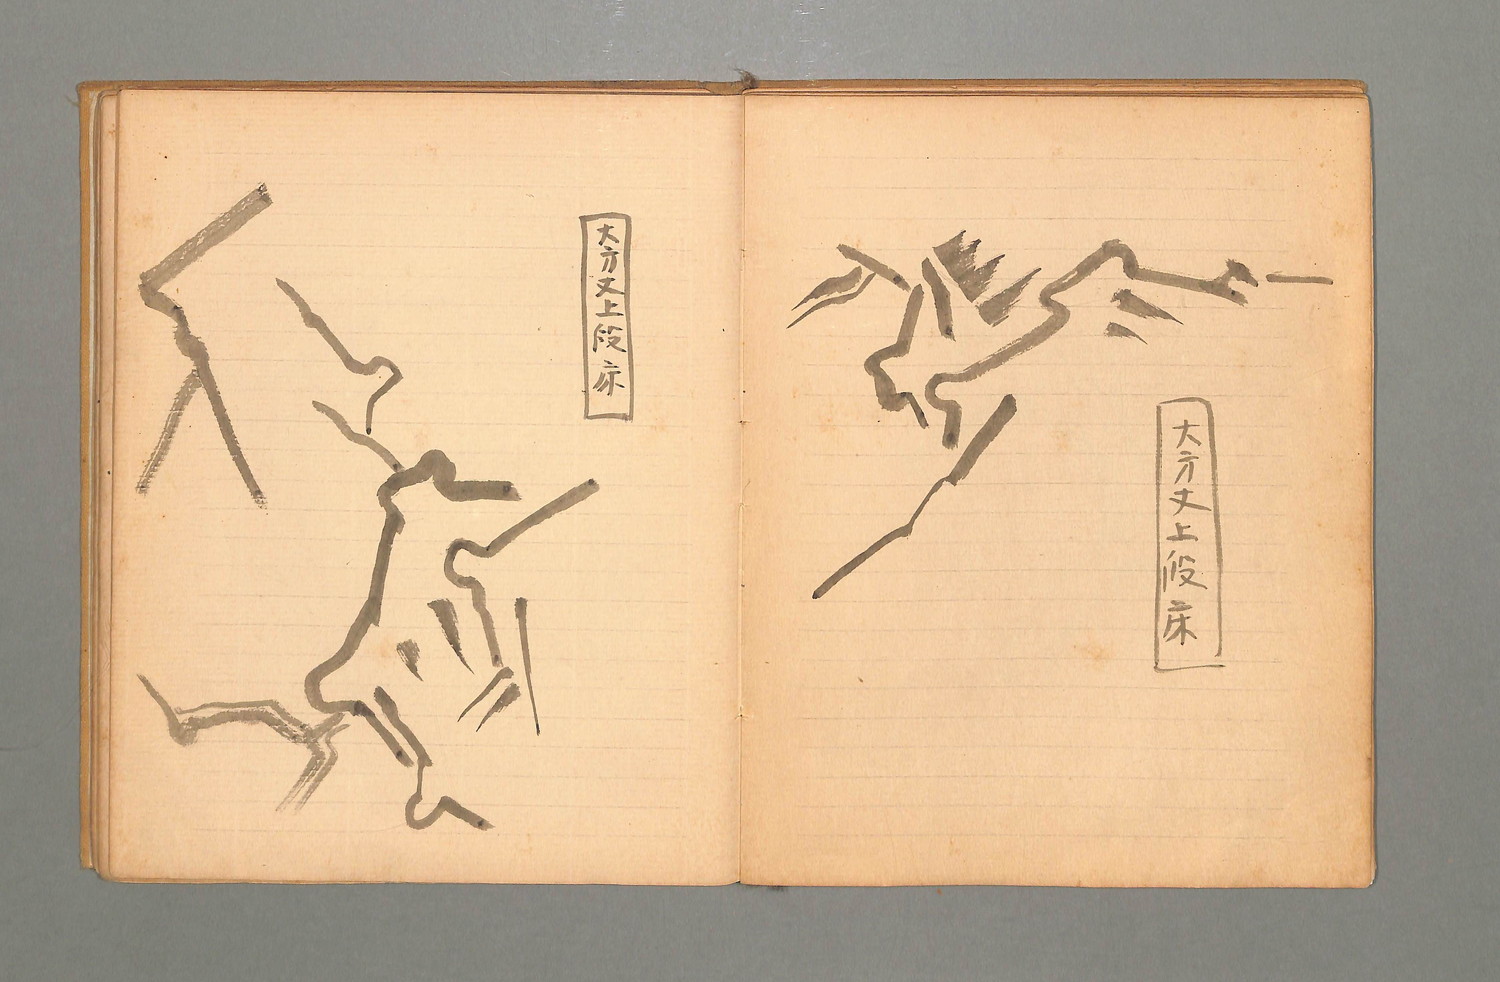 大方丈上段床
大方丈上段床